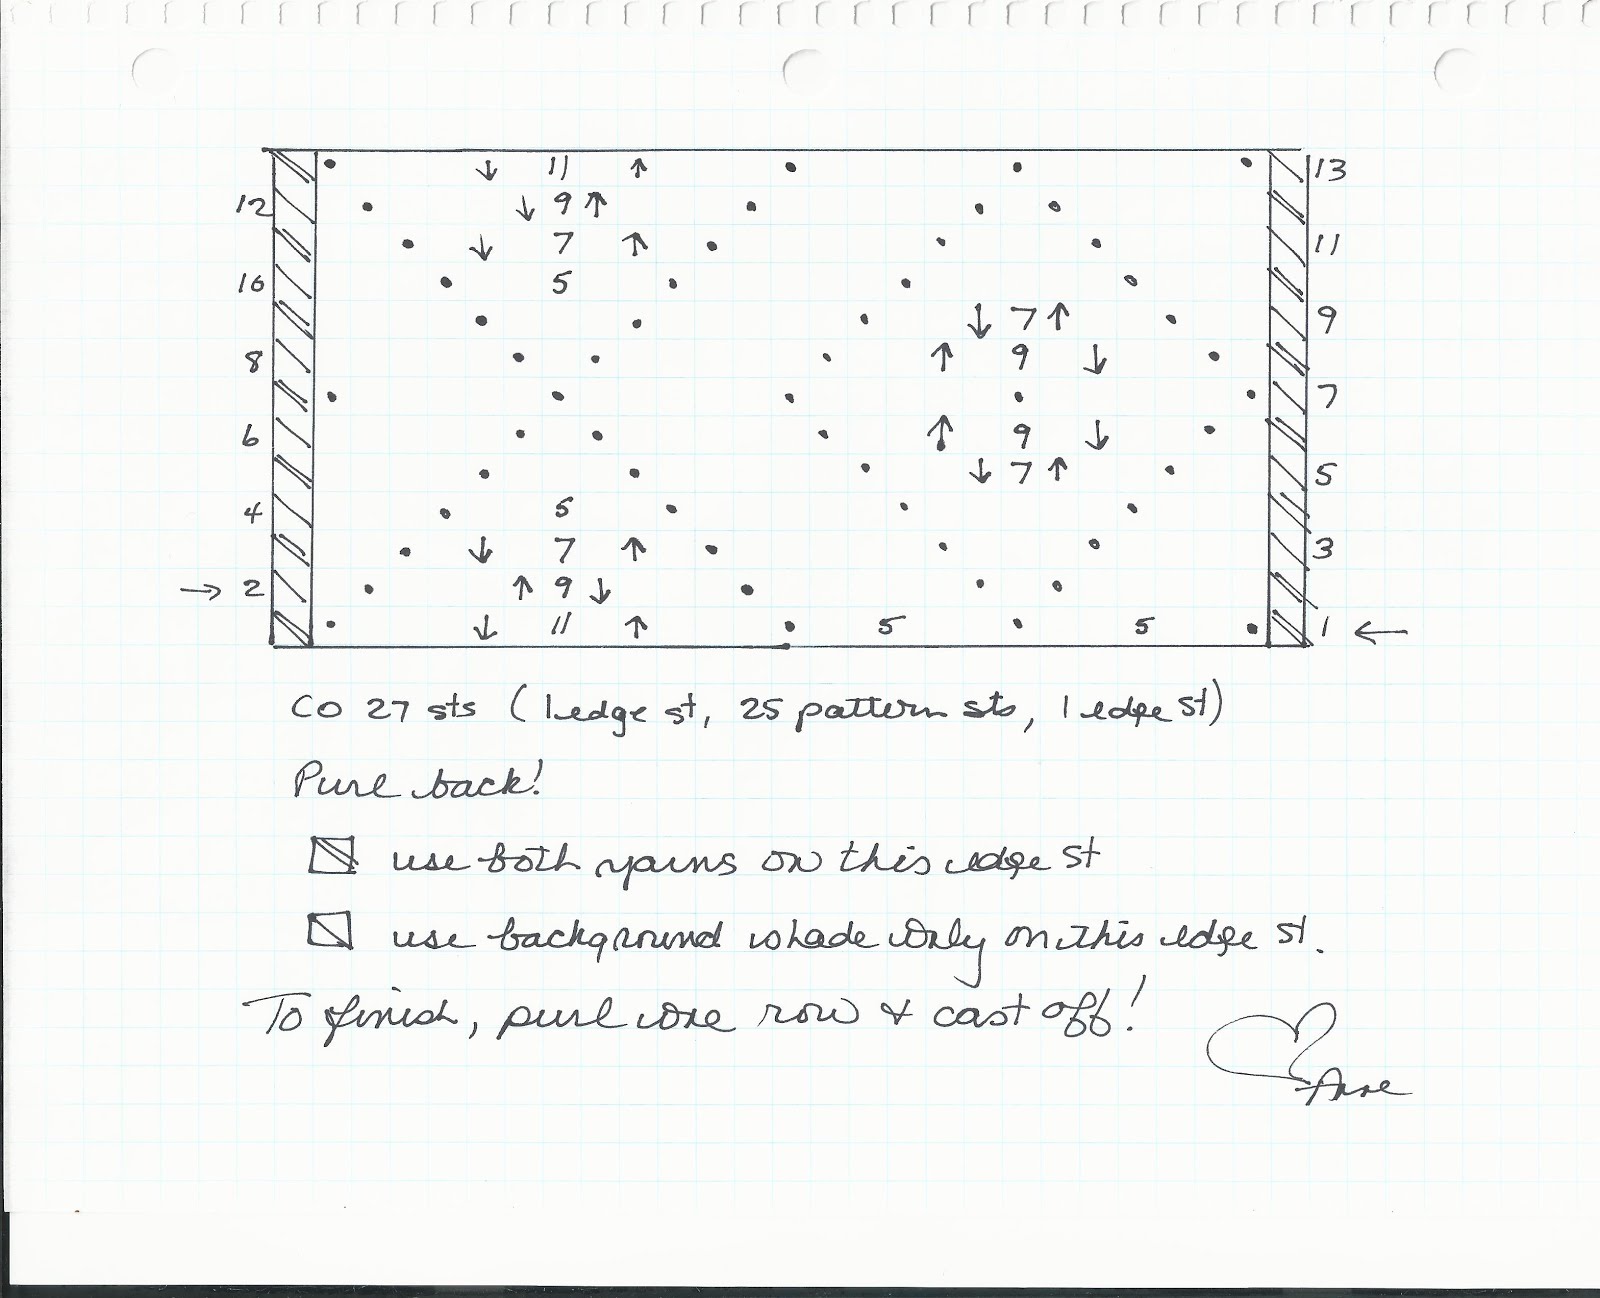 • ↓ 11 ↑ • • • 13
12 • ↓ 9 ↑ • • •
• ↓ 7 ↑ • • • 11
16 • 5 • • •
• • • ↓ 7 ↑ • 9
8 • • • ↑ 9 ↓ •
• • • • • 7
6 • • • ↑ 9 ↓ •
• • • ↓ 7 ↑ • 5
4 • 5 • • •
• ↓ 7 ↑ • • • 3
→ 2 • ↑ 9 ↓ • • •
• ↓ 11 ↑ • 5 • 5 • 1 ←
CO 27 sts (1 edge st, 25 pattern sts, 1 edge st)
Purl back!
use both yarns on this edge st
use background shade only on this edge st.
To finish, purl one row & cast off!
Anne